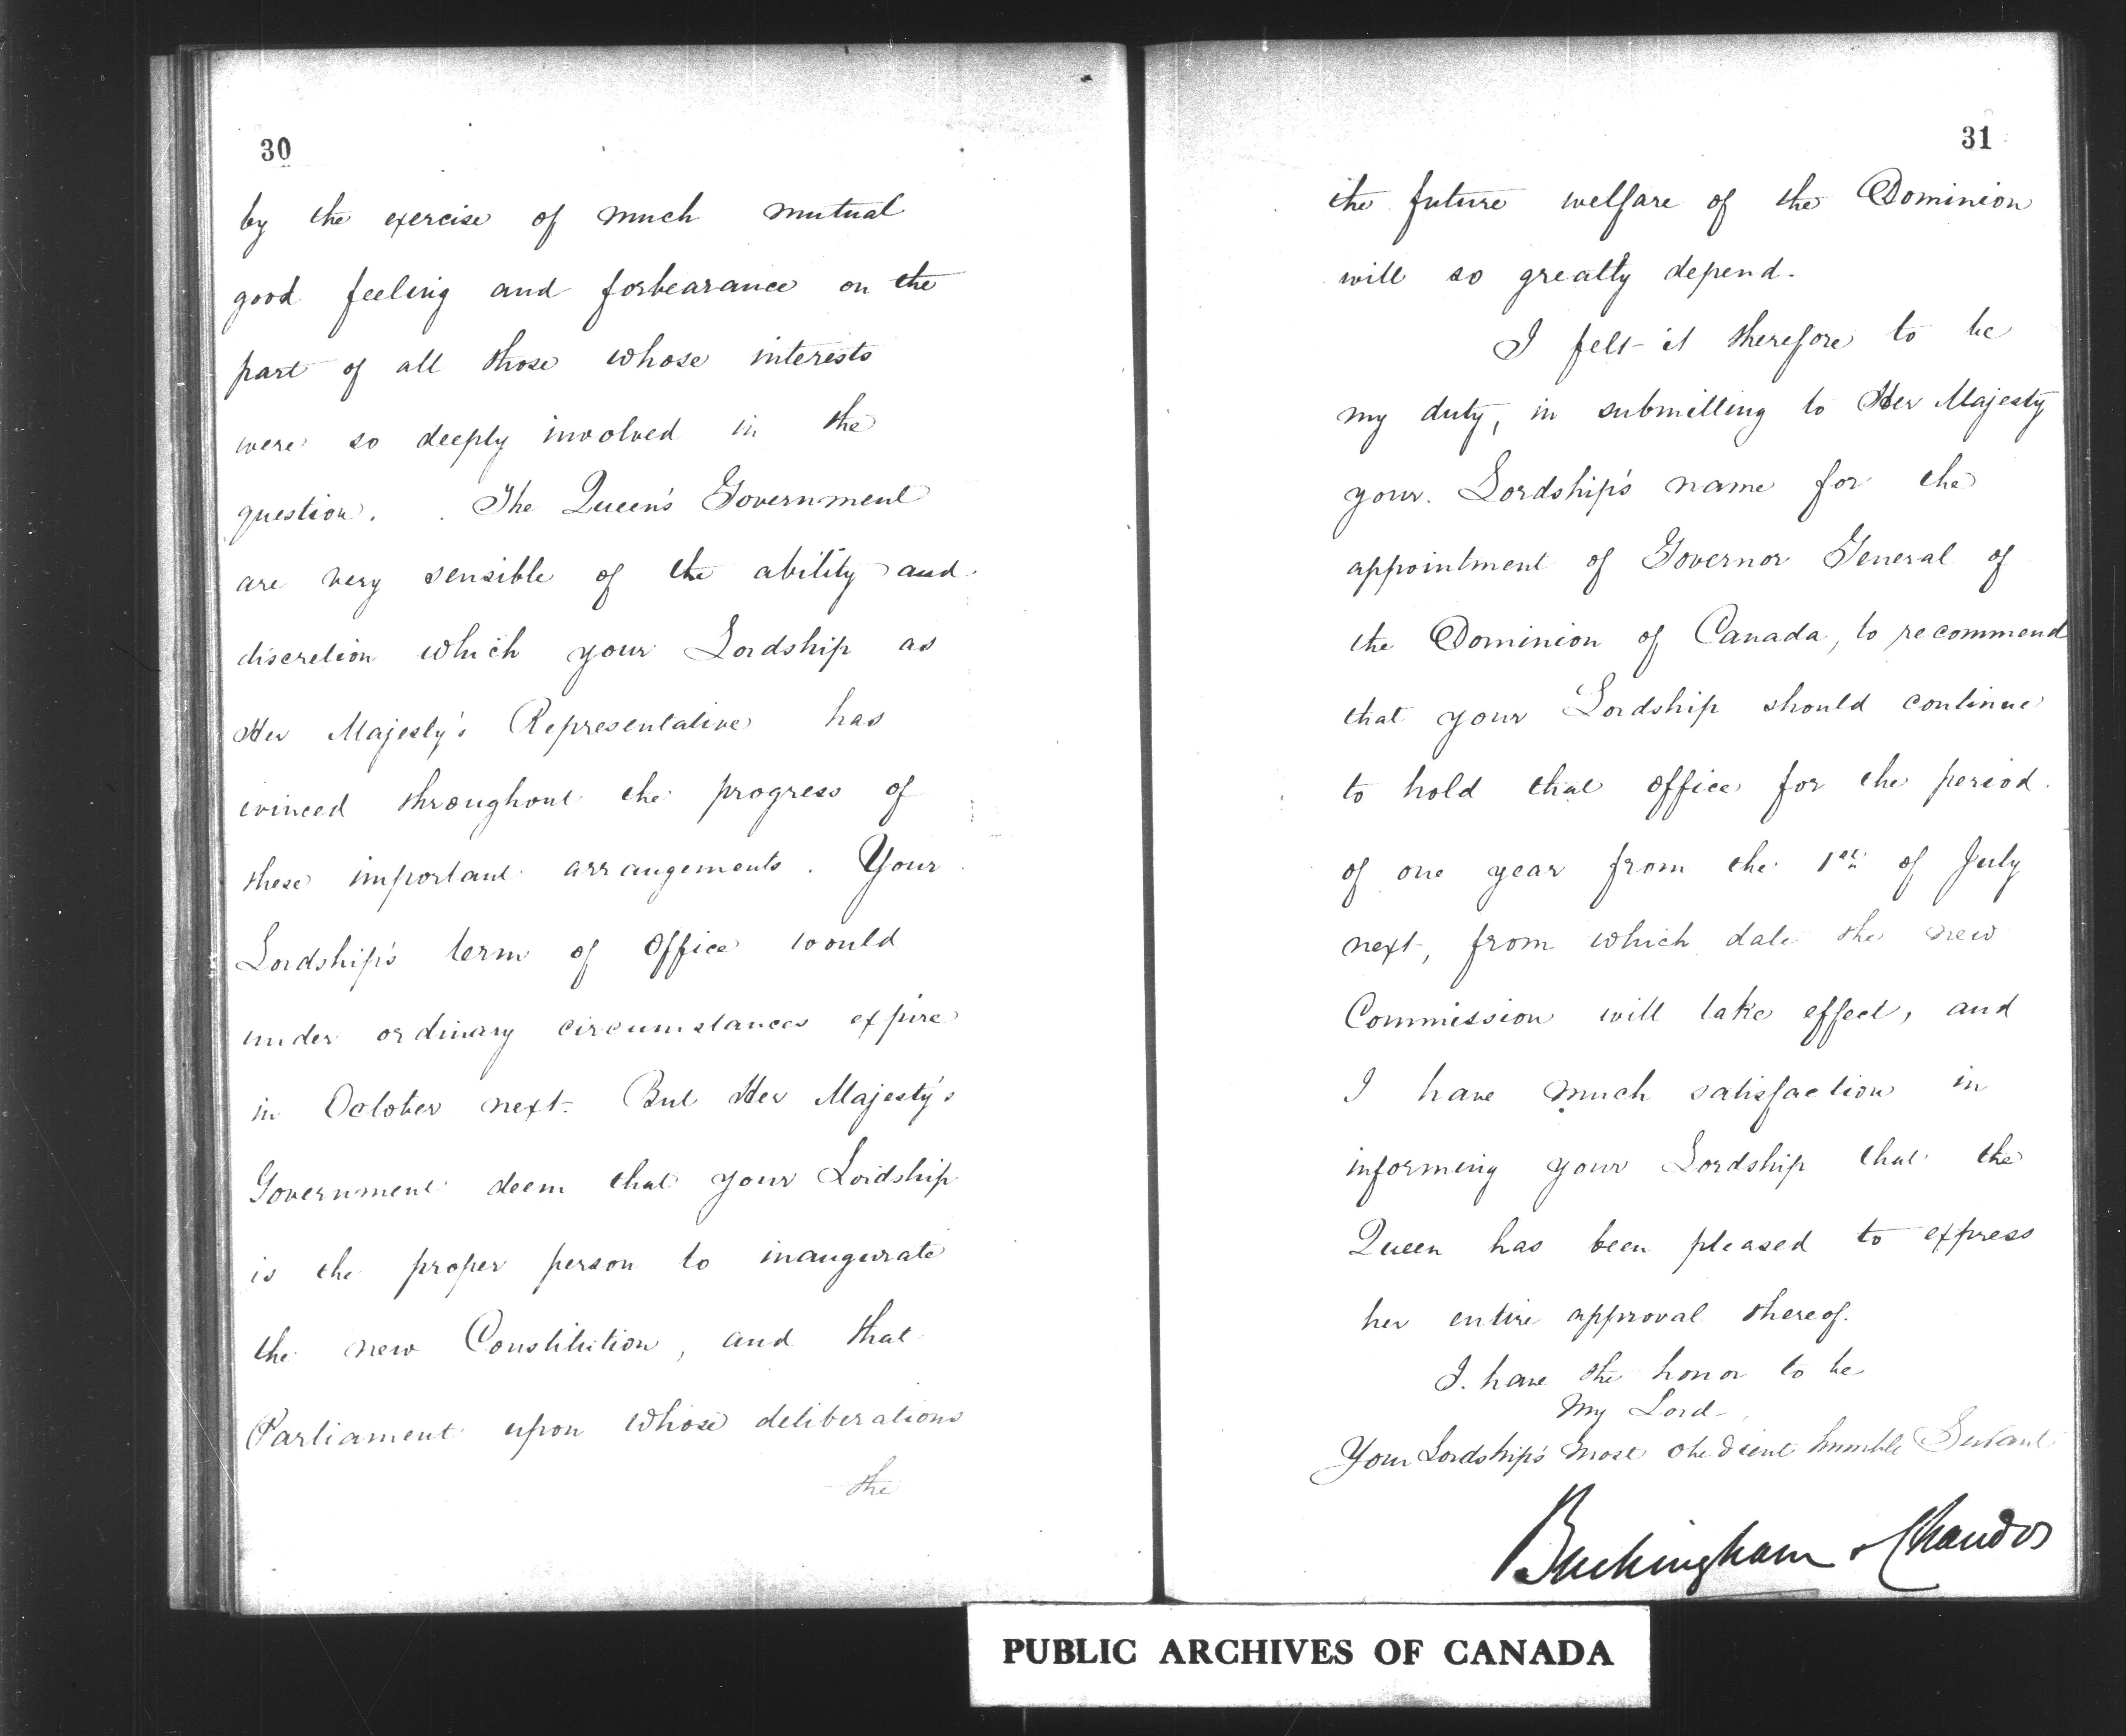 30
by the exercise of much mutual
good feeling and forbearance on the
part of all those whose interests
were so deeply involved in the
question. The Queen's Government
are very sensible of the ability and
discretion which your Lordship as
Her Majesty's Representative has
evinced throughout the progress of
these important arrangements. Your
Lordship's term of Office would
under ordinary circumstances expire
in October next. But Her Majesty's
Government deem that your Lordship
is the proper person to inaugurate
the new Constitution, and that
Parliament upon whose deliberations
the
31
the future welfare of the Dominion
will so greatly depend.
I felt it therefore to be
my duty, in submitting to Her Majesty
your Lordship's name for the
appointment of Governor General of
the Dominion of Canada, to recommend
that your Lordship should continue
to hold that office for the period
of one year from the 1st of July
next, from which date the new
Commission will take effect, and
I have much satisfaction in
informing your Lordship that the
Queen has been pleased to express
her entire approval thereof.
I have the honor to be
My Lord
Your Lordship's most obedient humble Servant
Buckingham & Chandos
PUBLIC ARCHIVES OF CANADA